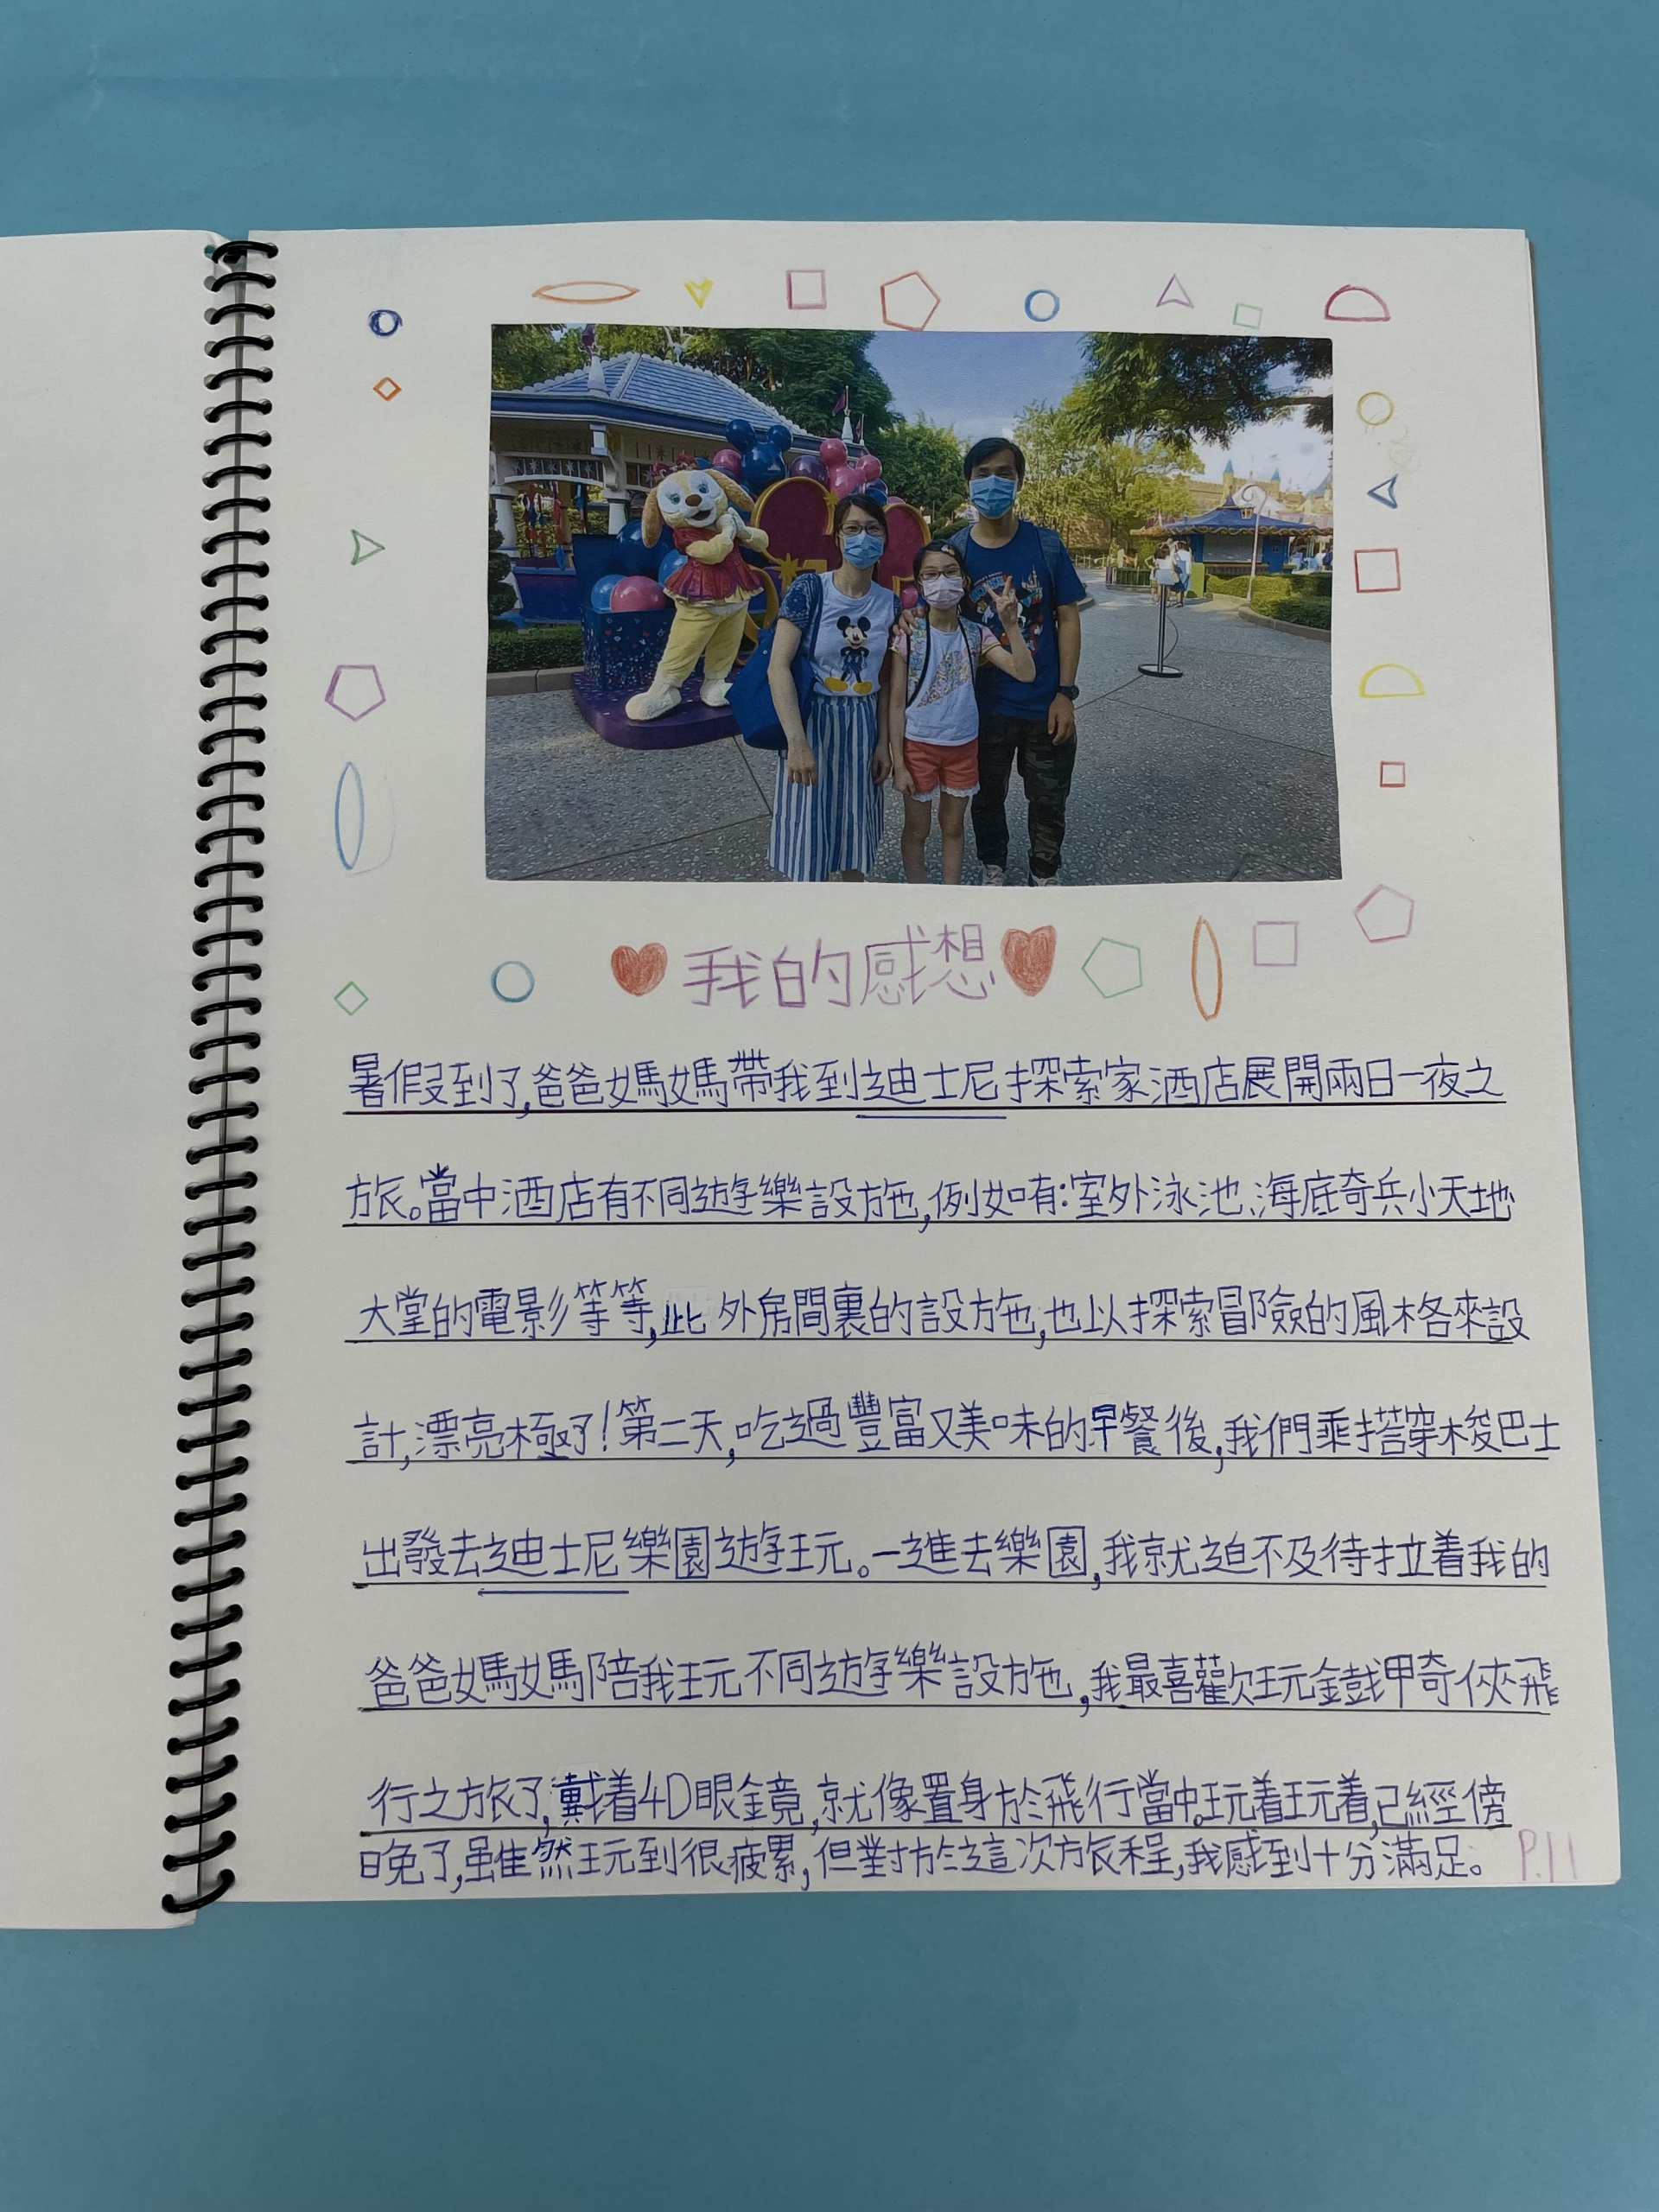 我的感想
暑假到了,爸爸媽媽帶我到迪士尼探索家酒店展開兩日一夜之
旅。當中酒店有不同遊樂設施,例如有:室外泳池、海底奇兵小天地
大堂的電影等等,此外房間裏的設施,也以探索冒險的風格來設
計,漂亮極了!第二天,吃過豐富又美味的早餐後,我們乘搭穿梭巴士
出發去迪士尼樂園遊玩。一進去樂園,我就迫不及待拉着我的
爸爸媽媽陪我玩不同遊樂設施,我最喜歡玩鐵甲奇俠飛
行之旅了,戴着4D眼鏡,就像置身於飛行當中。玩着玩着,已經傍
晚了,雖然玩到很疲累,但對於這次旅程,我感到十分滿足。
P.11